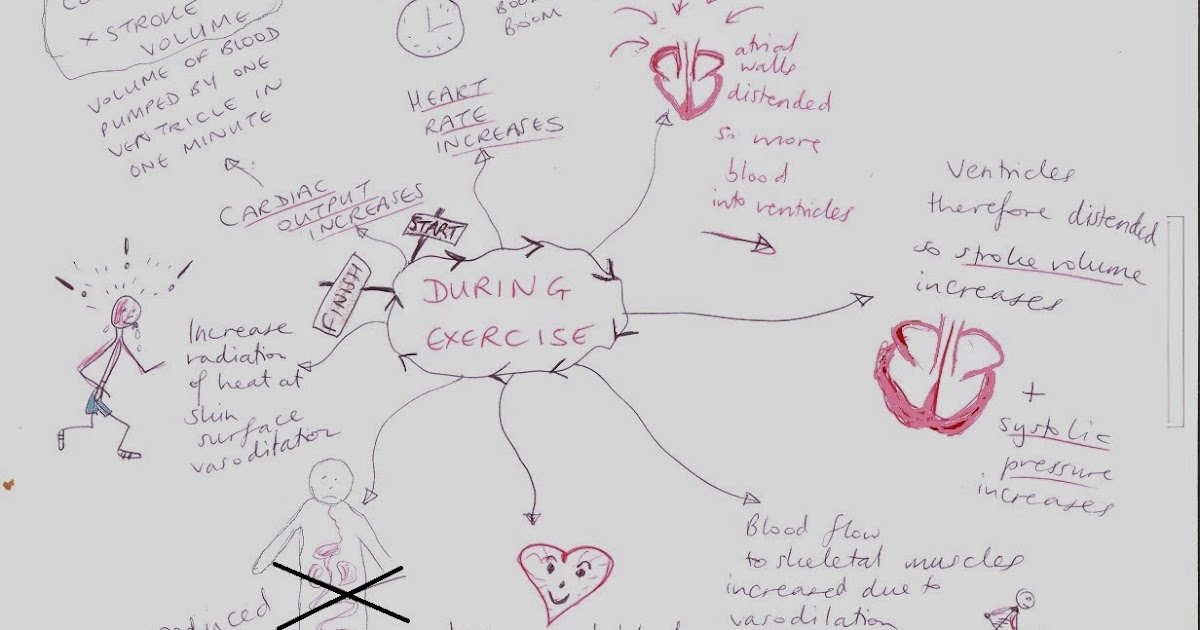 × STROKE
VOLUME
VOLUME OF BLOOD
PUMPED BY ONE
VENTRICLE IN
ONE MINUTE
CARDIAC
OUTPUT
INCREASES
BOOM
HEART
RATE
INCREASES
atrial
walls
distended
so more
blood
into ventricles
Ventricles
therefore distended
so stroke volume
increases
+
systolic
pressure
increases
START
FINISH
DURING
EXERCISE
Increase
radiation
of heat at
skin
surface
vasoditation
Blood flow
to skeletal muscles
increased due to
vasodilation